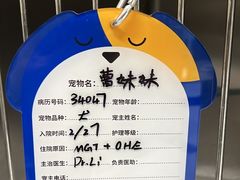 宠物名：曹妹妹
病历号码：34047 宠物年龄：
宠物品种：犬 宠主姓名：
入院时间：2/27 护理等级：
住院原因：MGT + OHE
主治医生：Dr.Li 负责医助：
宠主电话：